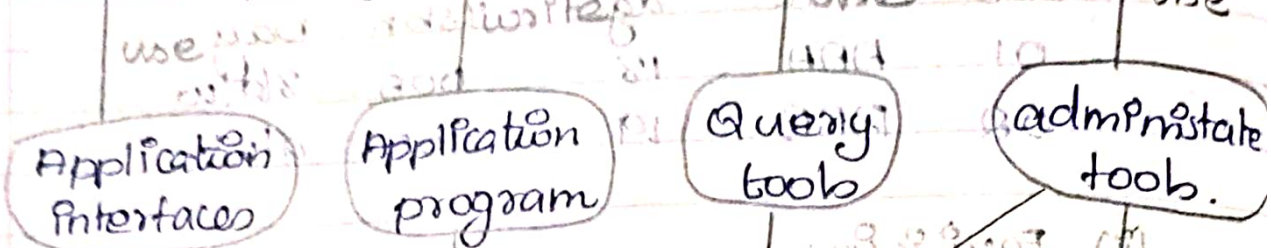 use
write
use
Application
interfaces
Application
program
Query
tools
administate
tools.